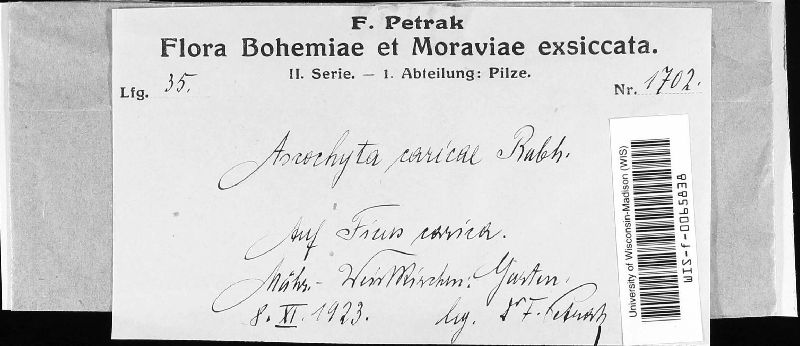 F. Petrak
Flora Bohemiae et Moraviae exsiccata.
II. Serie. — 1. Abteilung: Pilze.
Lfg. 35. Nr. 1702.
Ascochyta caricae Rabh.
Auf Ficus carica.
Mähr.-Weisskirchen: Garten.
8. XI. 1923. leg. Dr F. Petrak
University of Wisconsin-Madison (WIS)
WIS-f-0065838